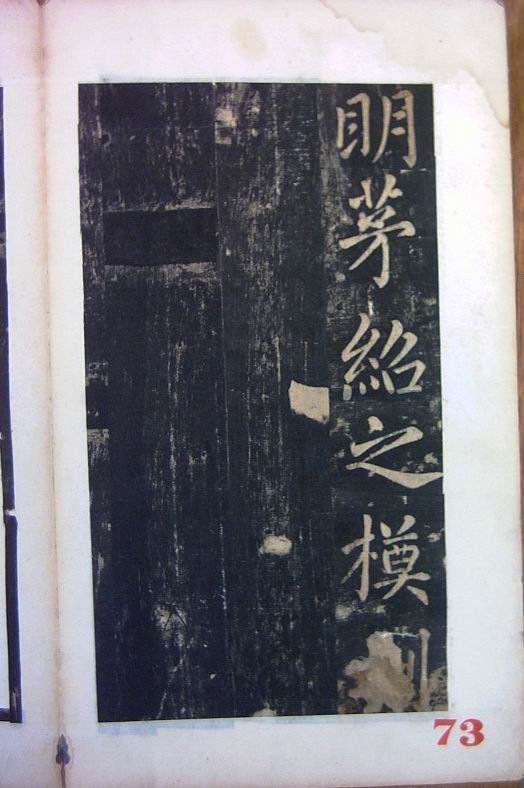 眀茅紹之模
73